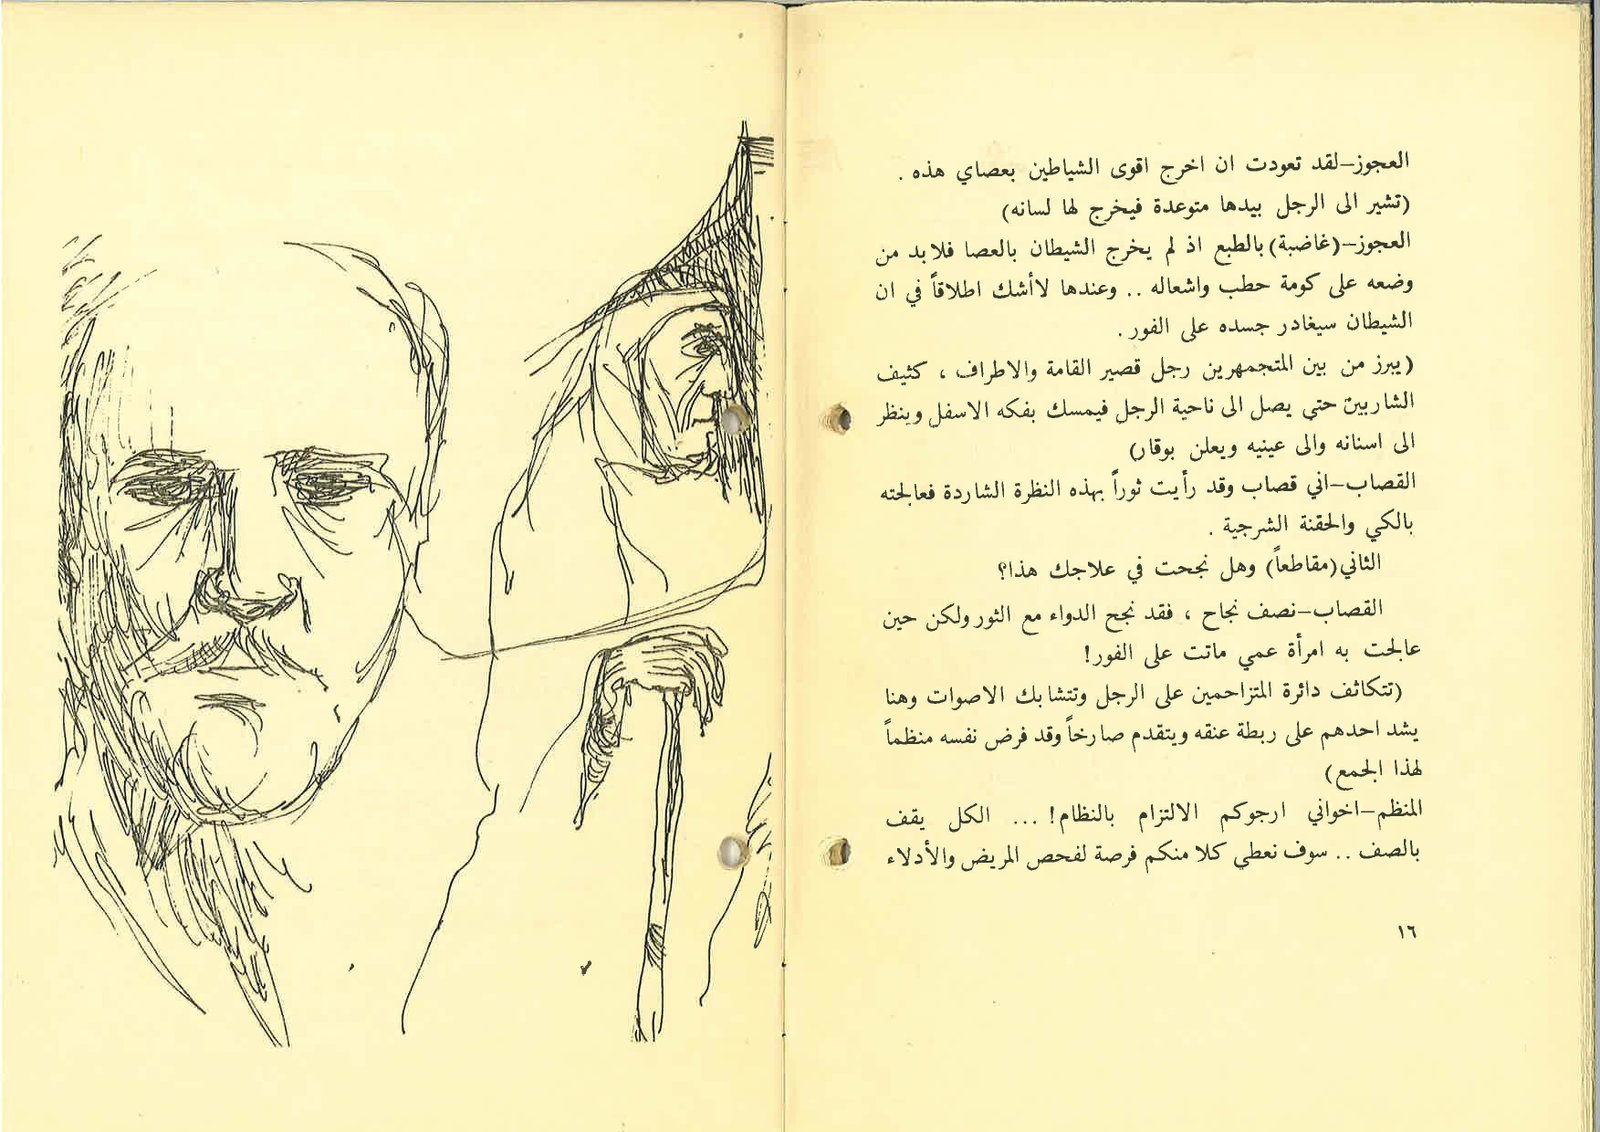 العجوز–لقد تعودت ان اخرج اقوى الشياطين بعصاي هذه .
(تشير الى الرجل بيدها متوعدة فيخرج لها لسانه)
العجوز–(غاضبة) بالطبع اذ لم يخرج الشيطان بالعصا فلابد من
وضعه على كومة حطب واشعاله .. وعندها لاأشك اطلاقاً في ان
الشيطان سيغادر جسده على الفور .
(يبرز من بين المتجمهرين رجل قصير القامة والاطراف ، كثيف
الشاربين حتى يصل الى ناحية الرجل فيمسك بفكه الاسفل وينظر
الى اسنانه والى عينيه ويعلن بوقار)
القصاب–اني قصاب وقد رأيت ثوراً بهذه النظرة الشاردة فعالجته
بالكي والحقنة الشرجية .
الثاني (مقاطعاً) وهل نجحت في علاجك هذا؟
القصاب–نصف نجاح ، فقد نجح الدواء مع الثور ولكن حين
عالجت به امرأة عمي ماتت على الفور!
(تتكاثف دائرة المتزاحمين على الرجل وتتشابك الاصوات وهنا
يشد احدهم على ربطة عنقه ويتقدم صارخاً وقد فرض نفسه منظماً
لهذا الجمع)
المنظم–اخواني ارجوكم الالتزام بالنظام! ... الكل يقف
بالصف .. سوف نعطي كلا منكم فرصة لفحص المريض والأدلاء
١٦